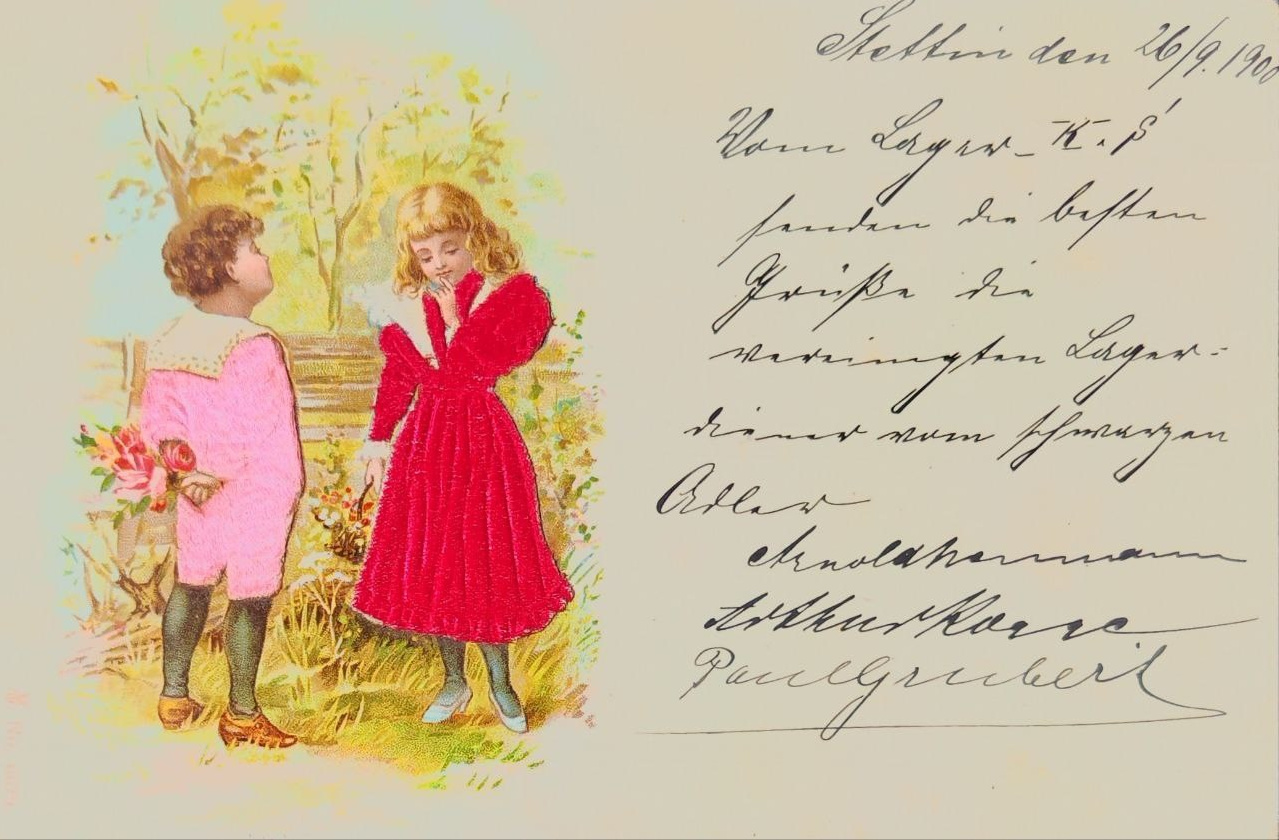 Stettin den 26/9. 1900
Vom Lager - K. P.
senden die besten
Grüße die
vereinigten Lager-
diener vom schwarzen
Adler
Arnold Hermann
Arthur
Paul Grubert